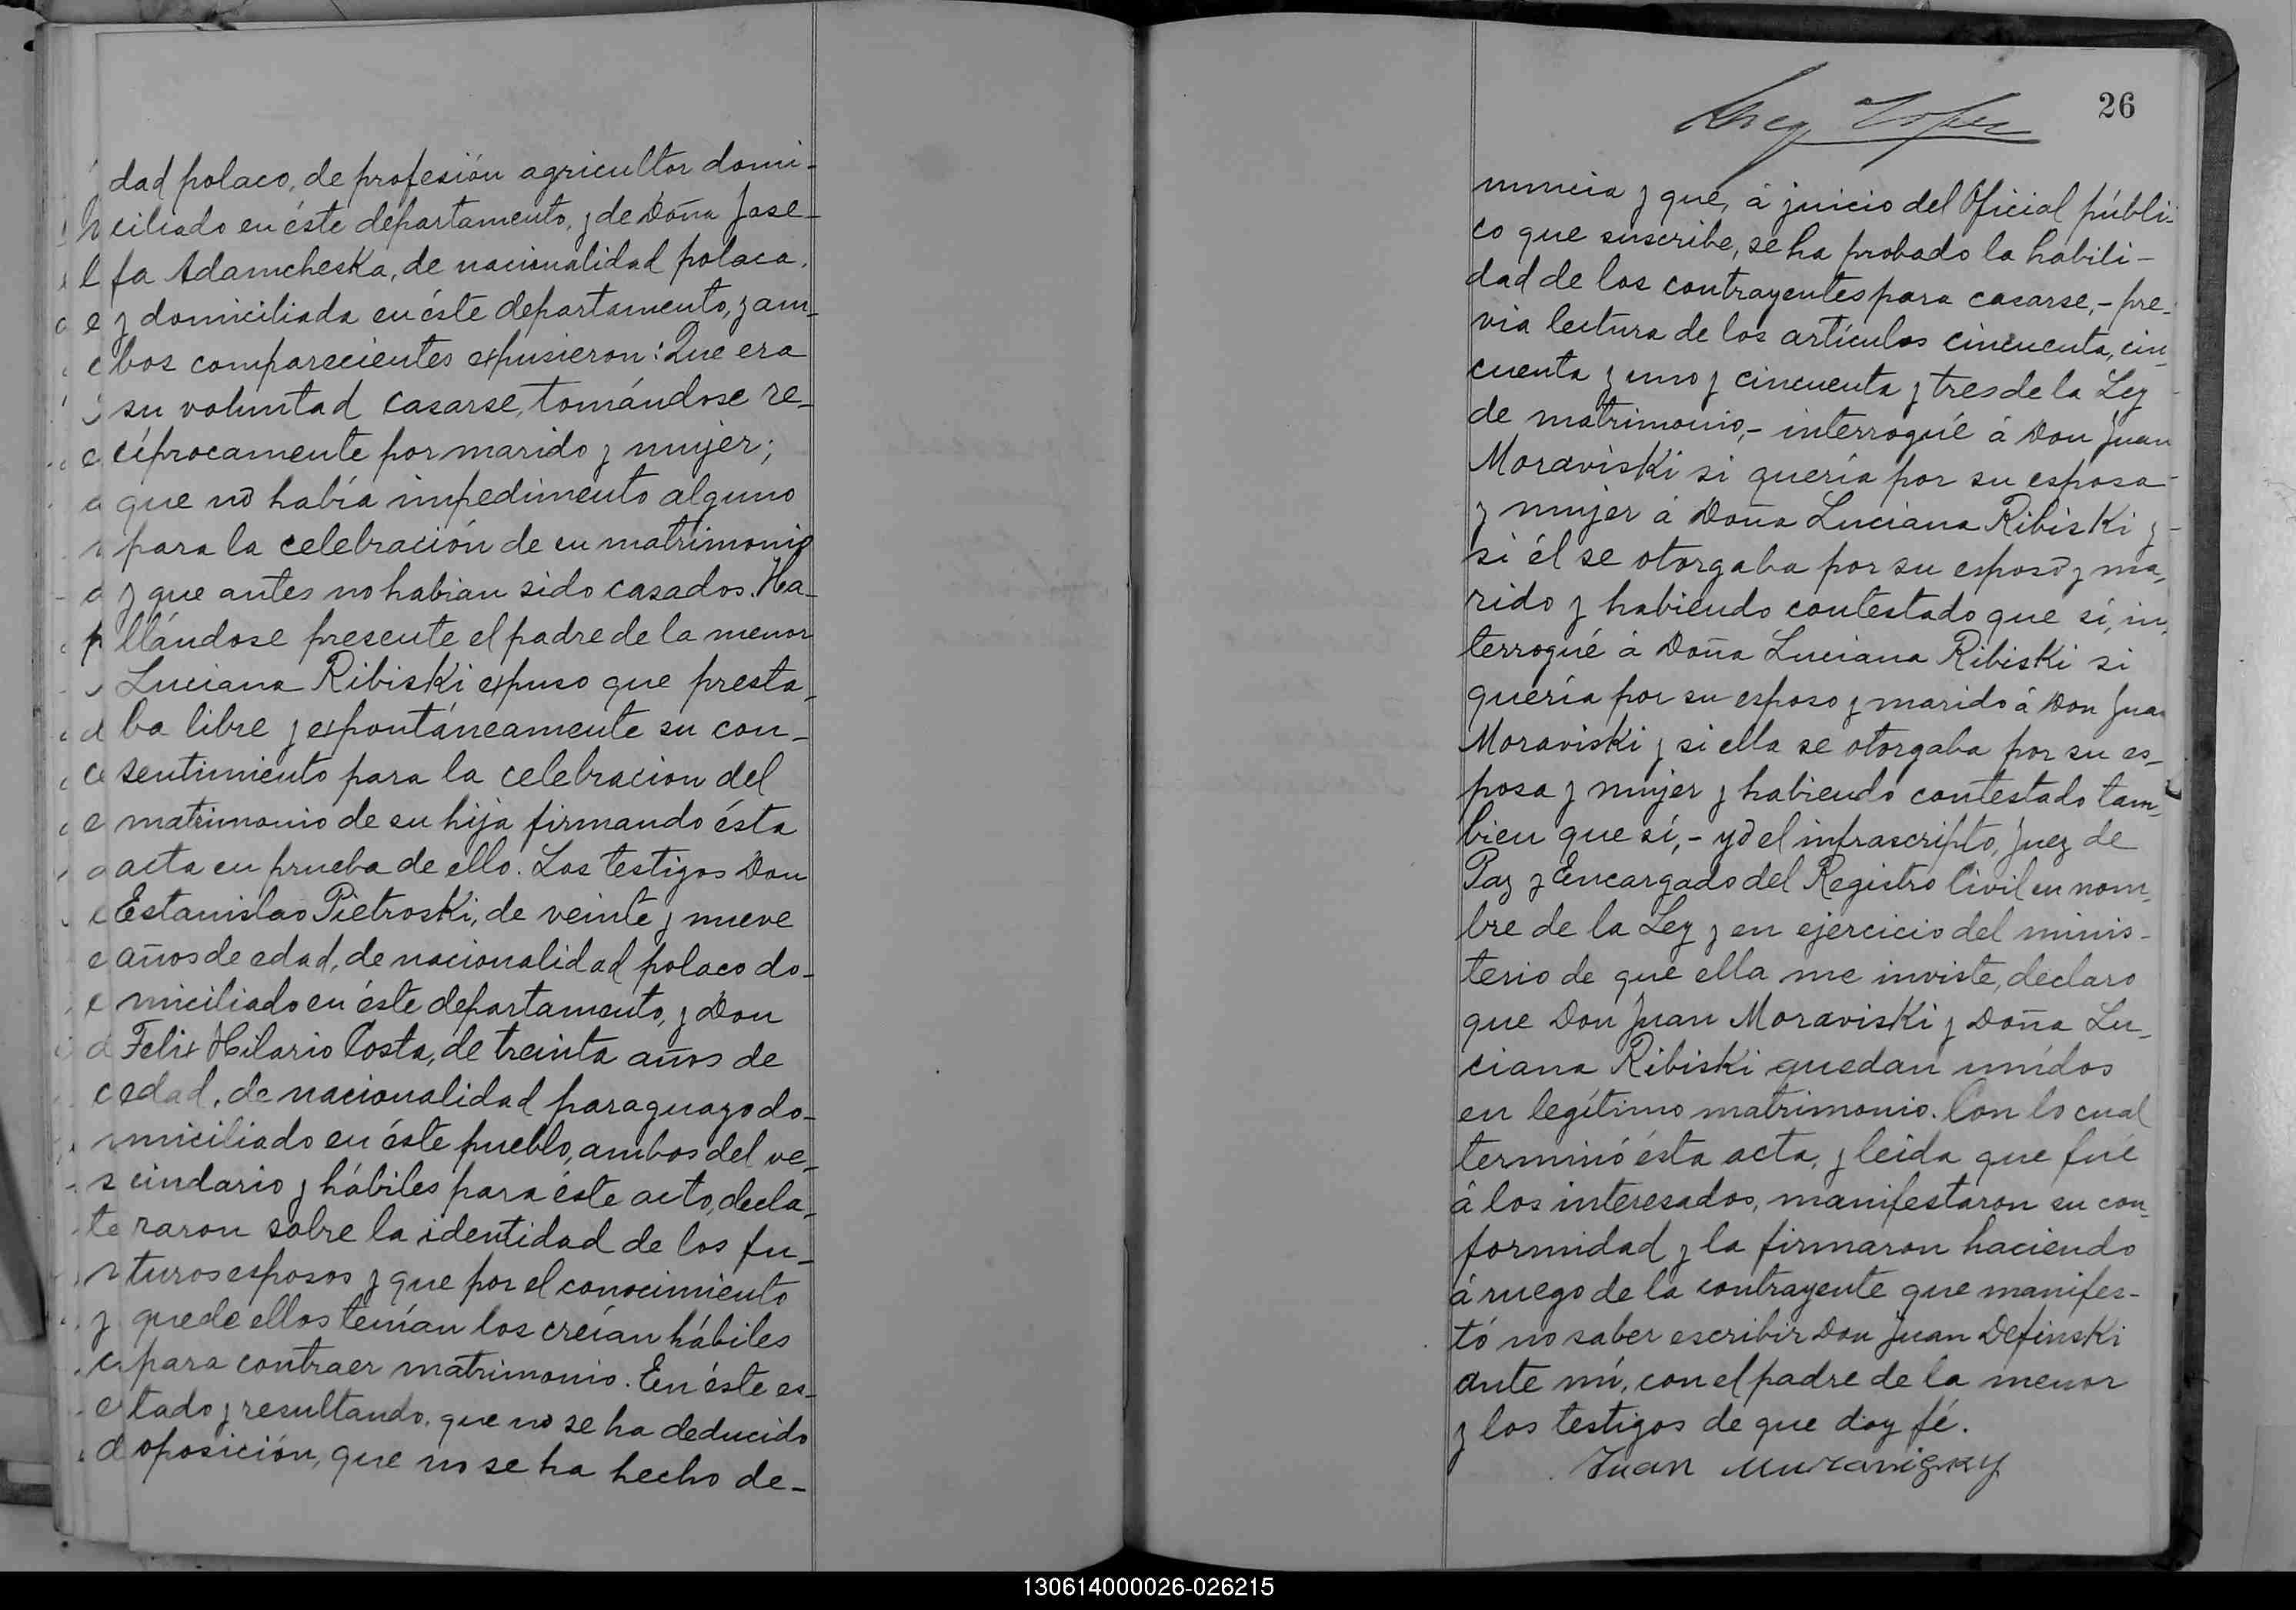 dad polaco, de profesión agricultor domi-
ciliado en éste departamento, y de Doña Jose-
fa Adamcheska, de nacionalidad polaca,
y domiciliada en éste departamento, y am-
bos comparecientes expusieron: Que era
su voluntad casarse, tomándose re-
cíprocamente por marido y mujer;
que no había impedimento alguno
para la celebración de su matrimonio
y que antes no habian sido casados. Ha-
llándose presente el padre de la menor
Luciana Ribiski expuso que presta-
ba libre y expontáneamente su con-
sentimiento para la celebracion del
matrimonio de su hija firmando ésta
acta en prueba de ello. Los testigos Don
Estanislao Pietroski, de veinte y nueve
años de edad, de nacionalidad polaco do-
miciliado en éste departamento, y Don
Felix Hilario Costa, de treinta años de
edad, de nacionalidad paraguayo do-
miciliado en éste pueblo, ambos del ve-
cindario y hábiles para éste acto, decla-
raron sobre la identidad de los fu-
turos esposos y que por el conocimiento
que de ellos tenían los creían hábiles
para contraer matrimonio. En éste es-
tado y resultando, que no se ha deducido
oposición, que no se ha hecho de-
26
nuncia y que, á juicio del Oficial públi-
co que suscribe, se ha probado la habili-
dad de los contrayentes para casarse,- pre-
via lectura de los artículos cincuenta, cin
cuenta y uno y cincuenta y tres de la Ley
de matrimonio,- interrogué á Don Juan
Moraviski si quería por su esposa
y mujer á Doña Luciana Ribiski y
si él se otorgaba por su esposo y ma-
rido y habiendo contestado que sí, in-
terrogué á Doña Luciana Ribiski si
quería por su esposo y marido á Don Juan
Moraviski y si ella se otorgaba por su es-
posa y mujer y habiendo contestado tam-
bien que sí,- yo el infrascripto, Juez de
Paz y Encargado del Registro Civil en nom-
bre de la Ley y en ejercicio del minis-
terio de que ella me inviste, declaro
que Don Juan Moraviski y Doña Lu-
ciana Ribiski quedan unídos
en legítimo matrimonio. Con lo cual
terminó ésta acta, y leida que fué
á los interesados, manifestaron su con-
formidad y la firmaron haciendo
á ruego de la contrayente que manifes-
tó no saber escribir Don Juan Definski
ante mí, con el padre de la menor
y los testigos de que doy fé.
Juan
130614000026-026215